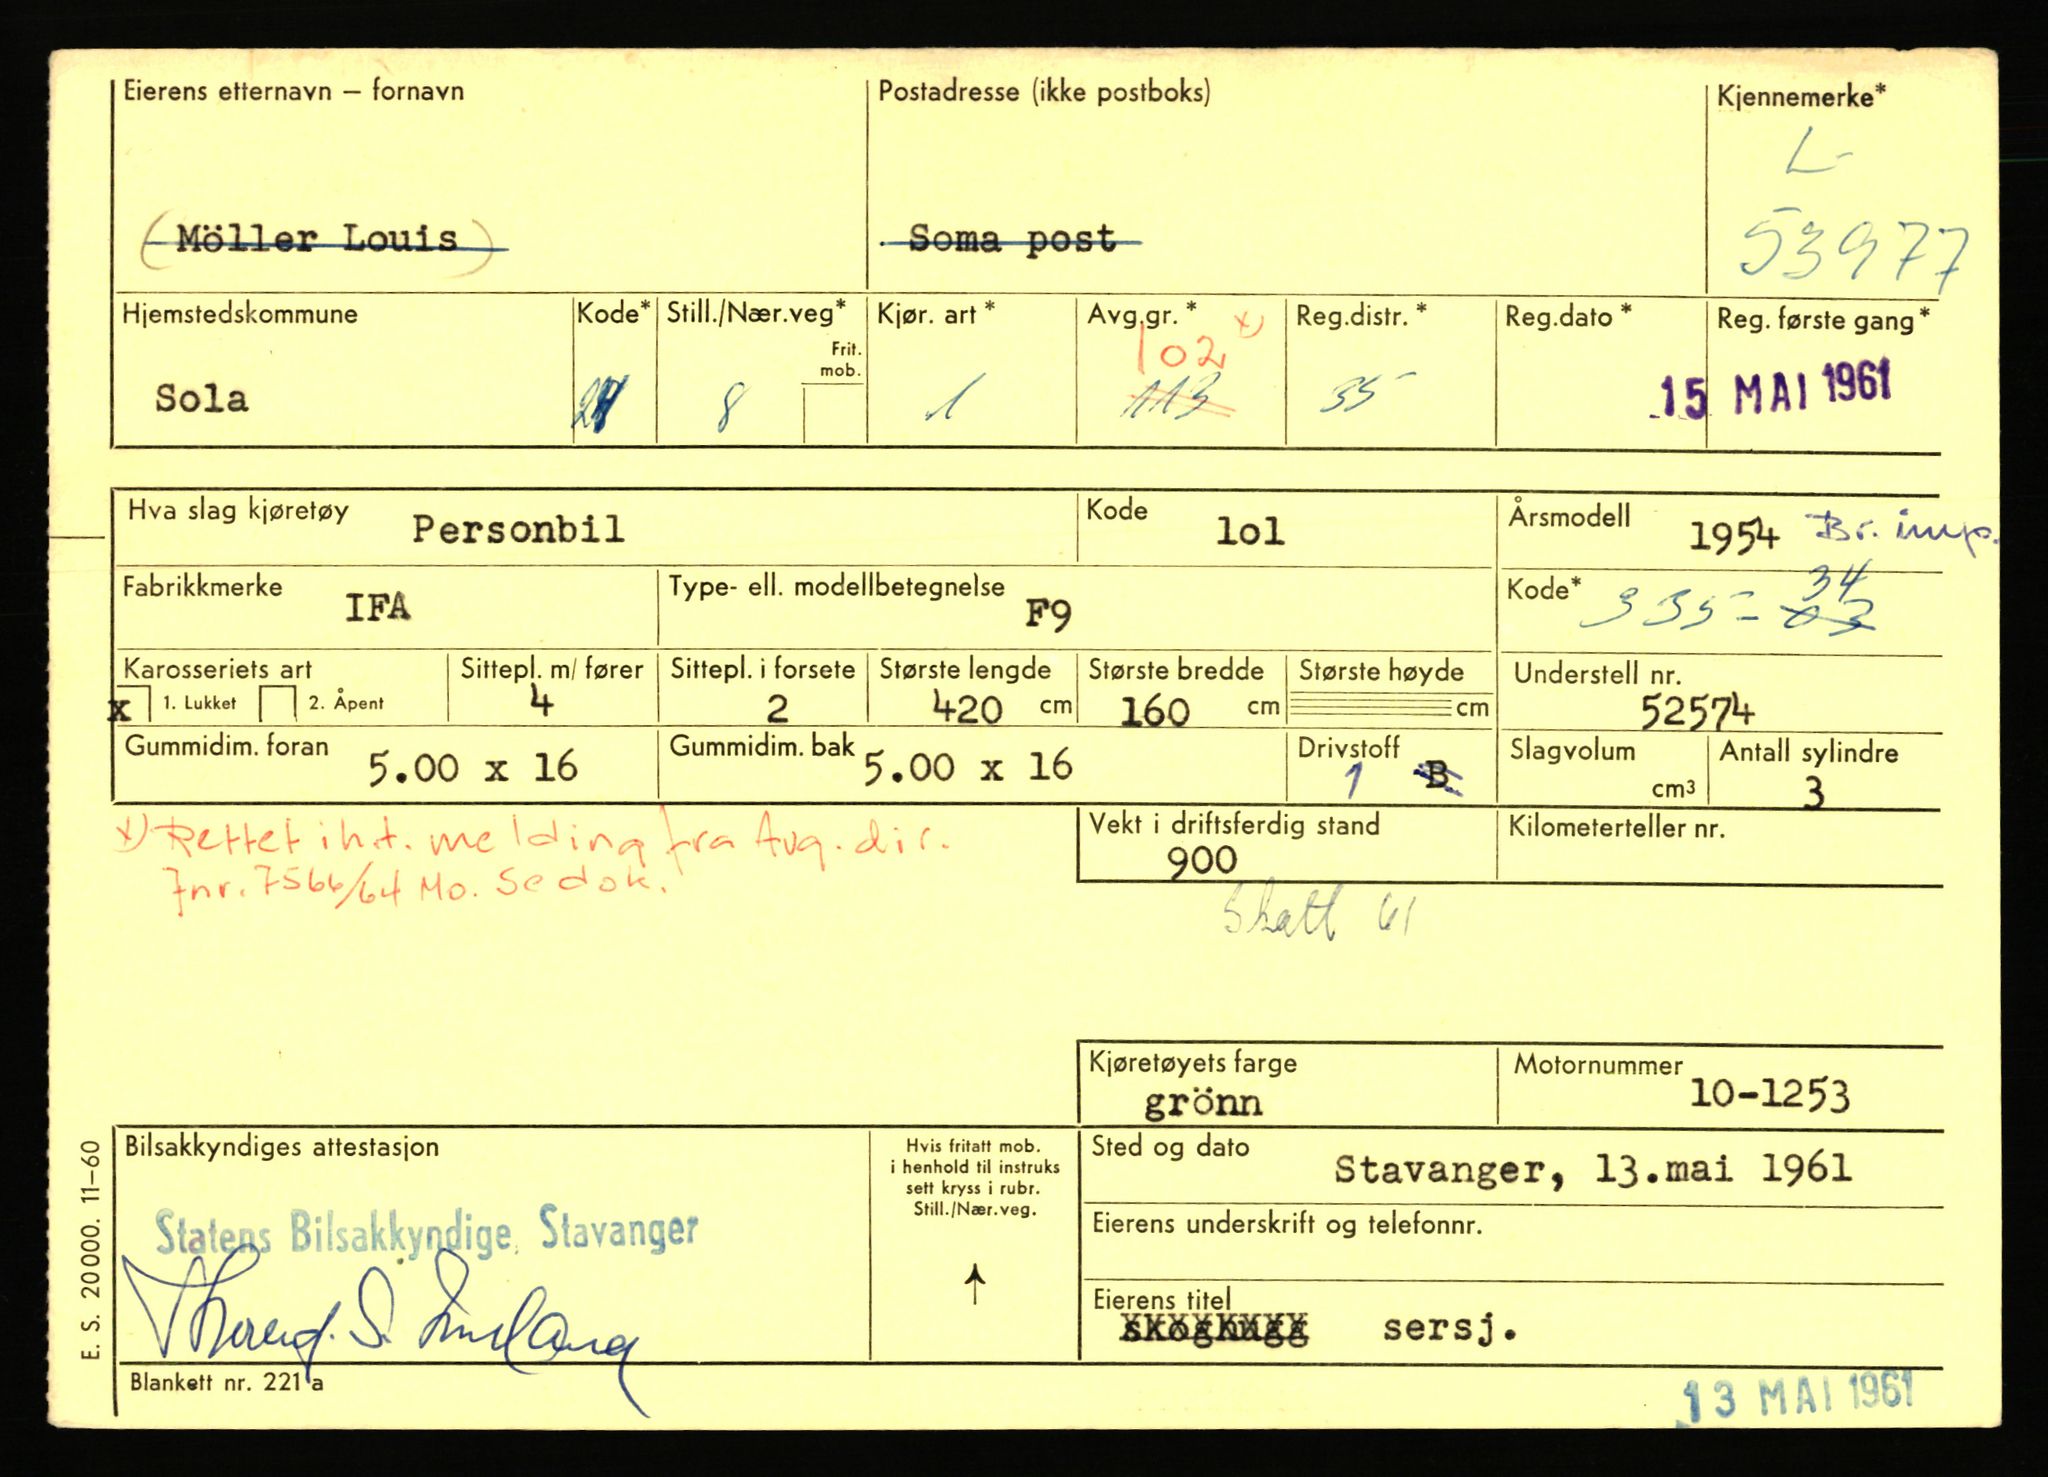 Eierens etternavn — fornavn
Postadresse (ikke postboks)
Kjennemerke*
L-
53977
(Möller Louis)
Soma post
Hjemstedskommune
Kode*
Still./Nær.veg*
Frit. mob.
Kjør. art *
Avg.gr. *
x)
Reg.distr. *
Reg.dato *
Reg. første gang*
102
Sola
8
1
113
35
15 MAI 1961
Hva slag kjøretøy
Personbil
Kode
lol
Årsmodell
1954
Br. imp.
Fabrikkmerke
IFA
Type- ell. modellbetegnelse
F9
Kode*
34
335 - 03
Karosseriets art
x 1. Lukket 2. Åpent
Sittepl. m/ fører
4
Sittepl. i forsete
2
Største lengde
420 cm
Største bredde
160 cm
Største høyde
cm
Understell nr.
52574
Gummidim. foran
5.00 x 16
Gummidim. bak
5.00 x 16
Drivstoff
1 B
Slagvolum
cm³
Antall sylindre
3
x) Rettet iht. melding fra Avg. dir.
Jnr. 7566/64 Mo. Sedok.
Vekt i driftsferdig stand
900
Kilometerteller nr.
Skatt 61
Kjøretøyets farge
grönn
Motornummer
10-1253
Bilsakkyndiges attestasjon
Statens Bilsakkyndige, Stavanger
Hvis fritatt mob.
i henhold til instruks
sett kryss i rubr.
Still./Nær.veg.
↑
Sted og dato
Stavanger, 13.mai 1961
Eierens underskrift og telefonnr.
Eierens titel
skoghugg sersj.
E. S. 20000. 11-60
Blankett nr. 221 a
13 MAI 1961